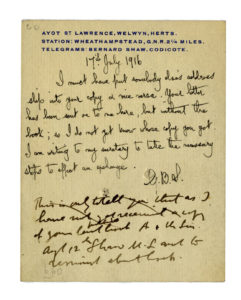 AYOT ST LAWRENCE, WELWYN, HERTS.
STATION: WHEATHAMPSTEAD, G.N.R. 2¼ MILES.
TELEGRAMS: BERNARD SHAW, CODICOTE.
17th July 1916
I must have put somebody else's address
slip into your copy & vice versa. Your letter
has been sent on to me here, but without the
book; so I do not yet know whose copy you got.
I am writing to my secretary to take the necessary
steps to effect an exchange.
G.B.S.
This is only to tell you that as I
have not received a copy
of your last book